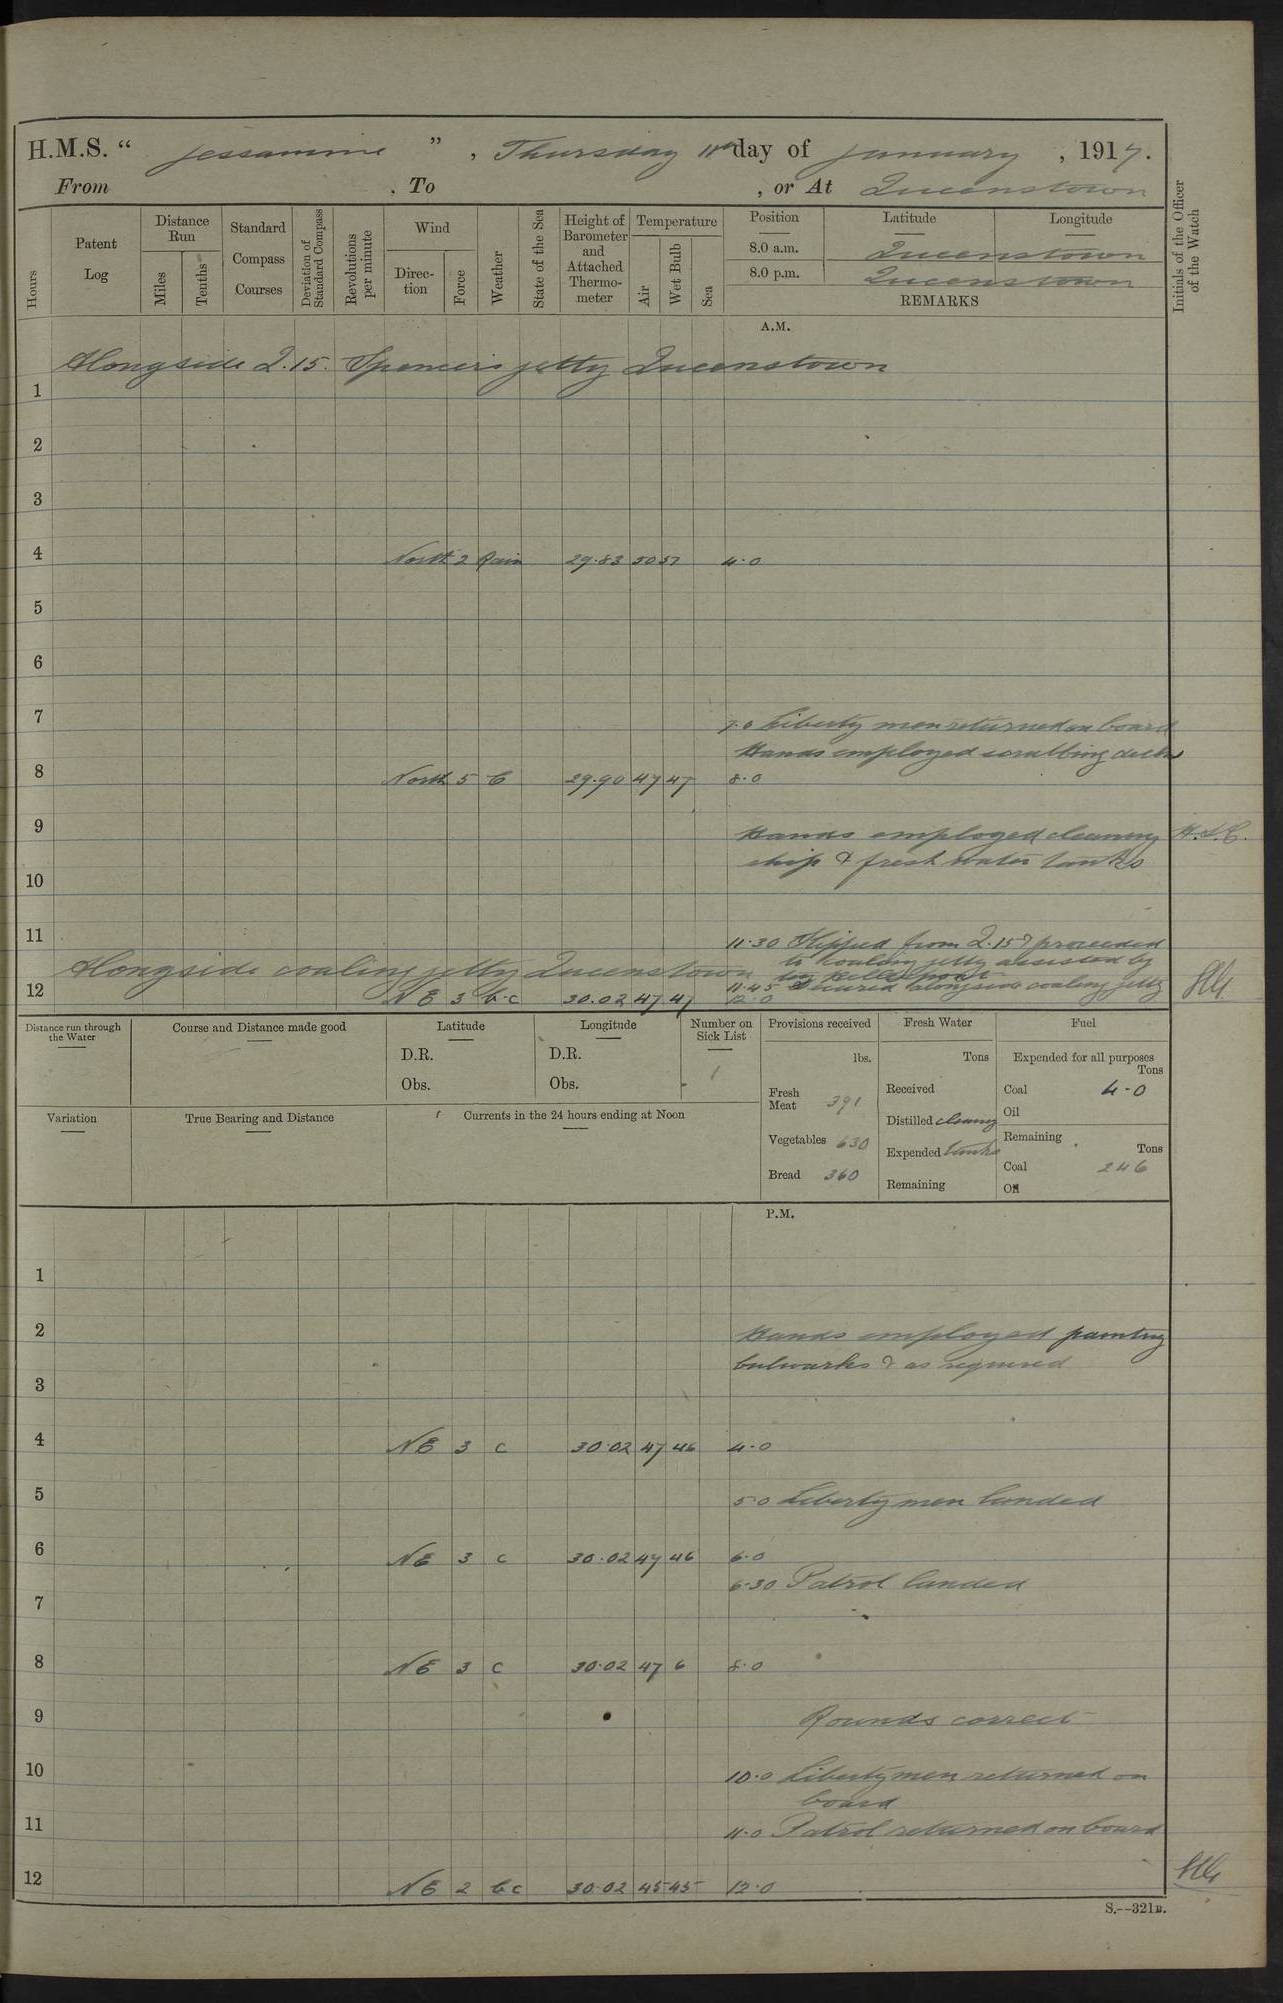 H.M.S. “ Jessamine ” , Thursday 11th day of January , 1917.
From , To , or At Queenstown
Hours
Patent Log
Distance Run
Miles
Tenths
Standard Compass Courses
Deviation of Standard Compass
Revolutions per minute
Wind
Direction
Force
Weather
State of the Sea
Height of Barometer and Attached Thermometer
Temperature
Air
Wet Bulb
Sea
Position Latitude Longitude
8.0 a.m. Queenstown
8.0 p.m. Queenstown
REMARKS
Initials of the Officer of the Watch
A.M.
Alongside Q.15. Spencer's jetty Queenstown
1
2
3
4 North 2 Rain 29.83 50 4.0
5
6
7
7.0 Liberty men returned on board
Hands employed scrubbing decks
8 North 5 C 29.90 47 47 8.0
9
Hands employed cleaning
ship & fresh water tanks
10
11
11.30 Slipped from Q.15 & proceeded
to coaling jetty assisted by
tug
Alongside coaling jetty Queenstown
11.45 Secured alongside coaling jetty
12 NE 3 b.c 30.02 47 47 12.0
Distance run through the Water
Course and Distance made good
Latitude
D.R.
Obs.
Longitude
D.R.
Obs.
Number on Sick List
1
Provisions received
lbs.
Fresh Meat 391
Vegetables 630
Bread 360
Fresh Water
Tons
Received
Distilled cleaning
Expended tanks
Remaining
Fuel
Expended for all purposes
Tons
Coal 4.0
Oil
Remaining
Tons
Coal 246
Oil
Variation
True Bearing and Distance
Currents in the 24 hours ending at Noon
P.M.
1
2
Hands employed painting
bulwarks & as required
3
4 NE 3 c 30.02 47 46 4.0
5
5.0 Liberty men landed
6 NE 3 c 30.02 47 46 6.0
6.30 Patrol landed
7
8 NE 3 c 30.02 47 6 8.0
9
Rounds correct
10
10.0 Liberty men returned on
board
11
11.0 Patrol returned on board
12 NE 2 b.c 30.02 45 45 12.0
S.--321B.